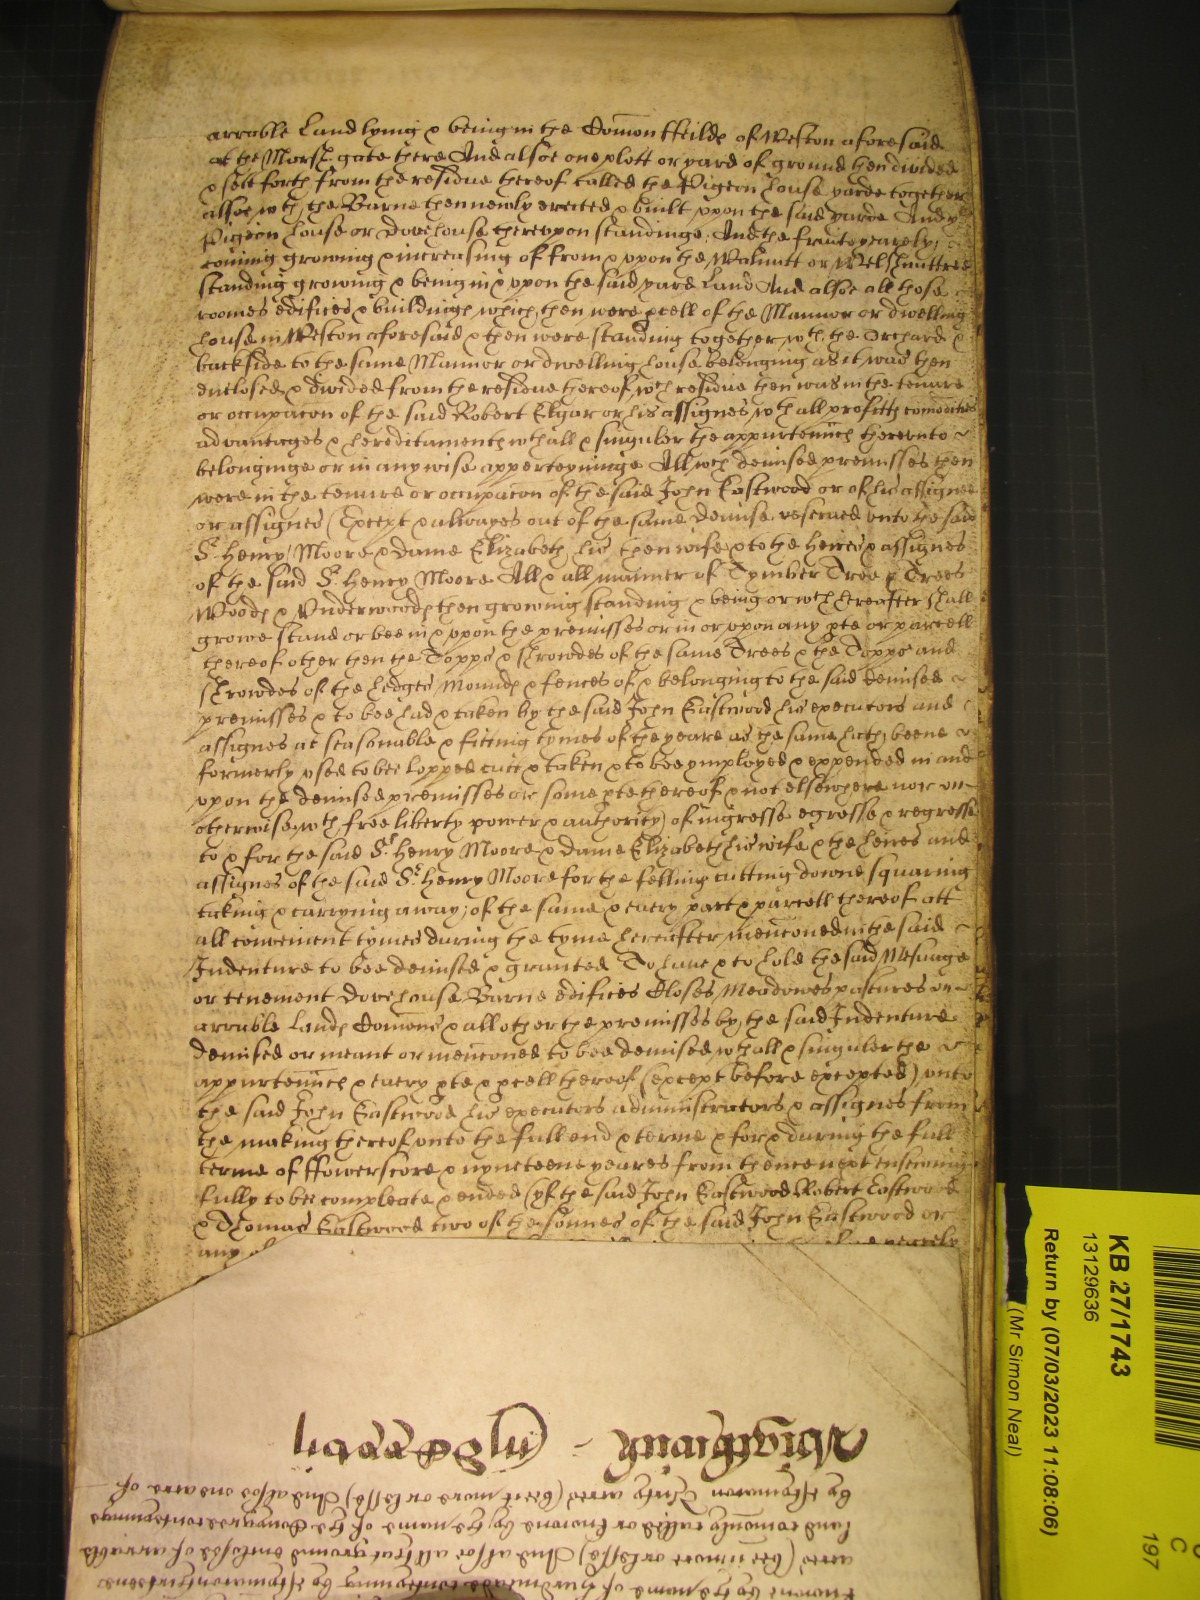 arrable Land lying & being in the Com̄on ffeild of Weston aforesaid
at the Marsh gate there And alsoe one plott or yard of ground then divided
& sett forth from the residue thereof called the Pigeon house yarde together
alsoe wth the Barne then newly erected & built vpon the said yarde And y
Pigeon house or Dovehouse therevpon standinge, And the fruite yearely
coming growing & increasing of from & vpon the Walnutt or Welshnuttree
standing growing & being in & vpon the said yard Land And alsoe all those
roomes edifices & buildings which then were pcell of the Mannor or dwelling
house in Weston aforesaid & then were standing together wth the Orchard &
backside to the same Mannor or dwelling house belonging as it was then
inclosed & divided from the residue thereof wch residue then was in the tenure
or occupacon of the said Robert Elgar or his assignes wth all profitts comodities
advantages & hereditaments wth all & singuler the appurtennc̄es therevnto
belonginge or in any wise apperteyninge All wch demised premisses then
were in the tenure or occupacon of the said John Eastwood or of his assignee
or assignes (Except & allwayes out of the same demise reserued vnto the said
Sr Henry Moore & dame Elizabeth his then wife & to the heires & assignes
of the said Sr Henry Moore All & all manner of Tymber Tree & Trees
Woods & Vnderwoods then growing standing & being or wch hereafter shall
growe stand or bee in & vpon the premisses or in or vpon any pte or parcell
thereof other then the Topps & shrowdes of the same Trees & the Topps and
shrowdes of the hedges Mounds & fences of & belonging to the said demised
premisses & to bee had & taken by the said John Eastwood his executors and
assignes at seasonable & fitting tymes of the yeare as the same hath beene
formerly vsed to bee lopped cutt & taken & to bee ymployed & expended in and
vpon the demised premisses or some pte thereof & not elsewhere nor
otherwise wth free liberty power & authority of ingresse egresse & regresse
to & for the said Sr Henry Moore & dame Elizabeth his wife & the heires and
assignes of the said Sr Henry Moore for the felling cutting downe squaring
taking & carrying away of the same & euery part & parcell thereof att
all convenient tymes during the tyme hereafter menc̄oned in the said
Indenture to bee demised & granted To haue & to hold the said Mesuage
or tenement Dovehouse Barne edifices Closes Meadowes pastures
arrable Land Com̄ons & all other the premisses by the said Indenture
demised or meant or menc̄oned to bee demised wth all & singuler the
appurtennc̄es & euery pte & pcell thereof (except before excepted) vnto
the said John Eastwood his executors administrators & assignes from
the making thereof vnto the full end & terme & for & during the full
terme of ffowerscore & nyneteene yeares from thence next ensewing
fully to bee compleate & ended (yf the said John Eastwood Robert Eastwood
& Thomas Eastwood two of the sonnes of the said John Eastwood or
any of yearely
by estymacon acres (bee it more or lesse) And alsoe one acre of
land comonly called or knowne by the name of the conteyninge
acre (bee it more or lesse) And alsoe all that ground inclosed of arrable
knowne by the name of conteyning by estymacon
KB 27/1743
13129636
Return by (07/03/2023 11:08:06)
(Mr Simon Neal)
C
197